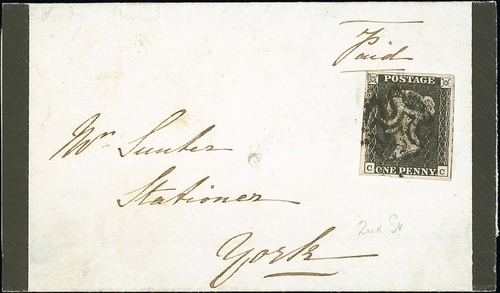 Paid
POSTAGE
C C
ONE PENNY
Mr. Sumter
Stationer
York